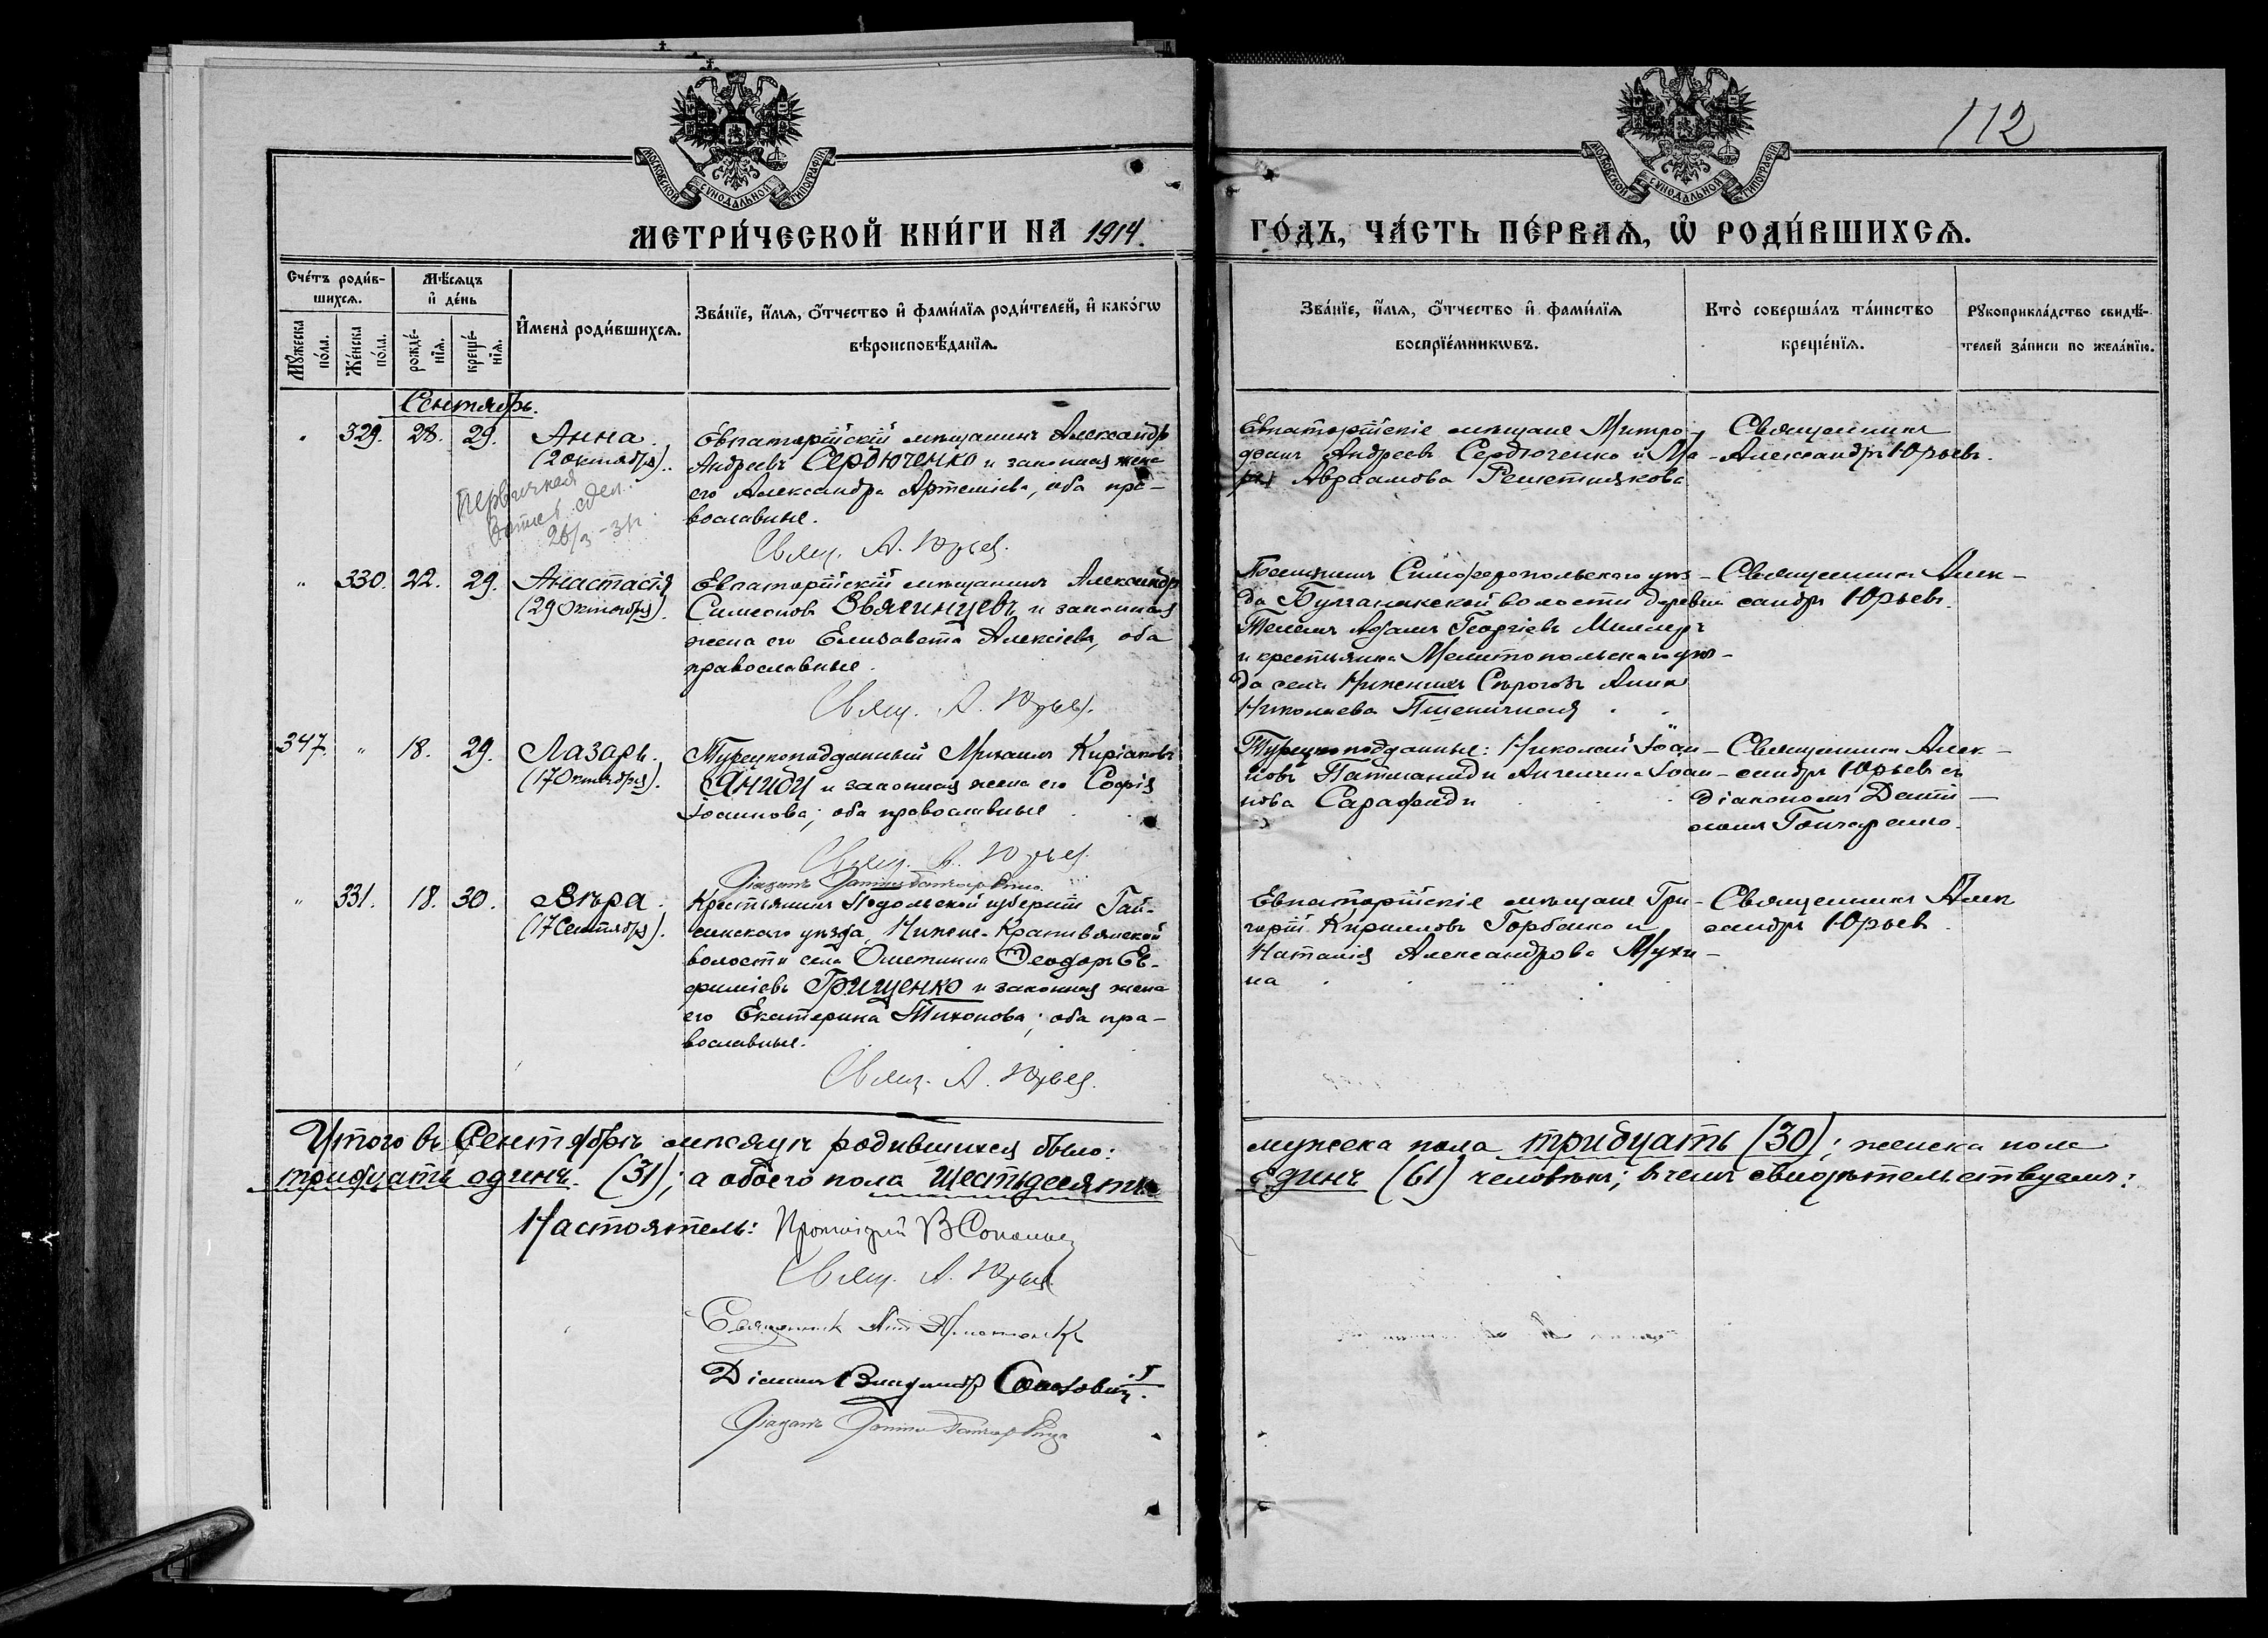 112
МОСКОВСКОЙ СУНОДАЛЬНОЙ ТИПОГРАФІИ
МОСКОВСКОЙ СУНОДАЛЬНОЙ ТИПОГРАФІИ
МЕТРИ́ЧЕСКОЙ КНИ́ГИ НА 1914. ГО́ДЪ, ЧА́СТЬ ПЕ́РВАѦ, Ѽ РОДИ́ВШИХСѦ.
Сче́тъ роди́в-
шихсѧ.
Мꙋ́жеска по́ла.
Же́нска по́ла.
Мѣ́сѧцъ
и҆ де́нь
рожде́-
нїѧ.
креще́-
нїѧ.
И҆мена̀ роди́вшихсѧ.
Зва́нїе, и҆́мѧ, ѻ҆́тчество и҆ фами́лїѧ роди́телей, и҆ како́гѡ
вѣроисповѣ́данїѧ.
Зва́нїе, и҆́мѧ, ѻ҆́тчество и҆ фами́лїѧ
воспрїе́мникѡвъ.
Кто̀ соверша́лъ та́инство
креще́нїѧ.
Рꙋкоприкла́дство свидѣ́-
телей за́писи по жела́нїю.
Сентябрь.
" 329. 28. 29. Анна.
(2 октября).
Первичная
26/3-31
Евпаторійскій мѣщанинъ Александръ
Андреевъ Сердюченко и законная жена
его Александра Артеміева, оба пра-
вославные.
Свящ. А. Юрьев.
Евпаторійскіе мѣщане Митро-
фанъ Андреевъ Сердюченко и Ма-
рія Авраамова Решетнякова
Священникъ
Александръ Юрьевъ.
" 330. 22. 29. Анастасія
(29 Октября).
Евпаторійскій мѣщанинъ Александръ
Симеоновъ Звягинцевъ и законная
жена его Елизавета Алексіева, оба
православные.
Свящ. А. Юрьев.
Поселянинъ Симферопольскаго уѣз-
да Булганакской волости деревни
Адамъ Георгіевъ Миллеръ
и крестьянка Мелитопольскаго уѣз-
да села Нижнихъ Сѣрогозъ Анна
Николаева Пшеничная
Священникъ Алек-
сандръ Юрьевъ.
347. " 18. 29. Лазарь.
(17 Октября).
Турецкоподданный Михаилъ Киріаковъ
Яниди и законная жена его Софія
Іоаннова; оба православные
Свящ. А. Юрьев.
Діаконъ Даніилъ Гончаренко
Турецкоподданные: Николай Іоан-
новъ Патманиди Ангелина Іоан-
нова Сарафиди
Священникъ Алек-
сандръ Юрьевъ съ
діакономъ Дані-
иломъ Гончаренко.
" 331. 18. 30. Вѣра.
(17 Сентября).
Крестьянинъ Подольской губерніи Гай-
синскаго уѣзда, Нижне-Крапивянской
волости села Ѳеодоръ Ев-
ѳиміевъ Грищенко и законная жена
его Екатерина Тихонова; оба пра-
вославные.
Свящ. А. Юрьев.
Евпаторійскіе мѣщане Гри-
горій Кирилловъ Горбенко и
Наталія Александрова Мухи-
на
Священникъ Алек
сандръ Юрьев
Итого въ Сентябрѣ мѣсяцѣ родившихся было: мужеска пола тридцать (30); женска пола
тридцать одинъ (31); а обоего пола шестьдесятъ одинъ (61) человѣкъ; въ чемъ свидѣтельствуемъ:
Настоятель: Протоіерей В
Свящ. А. Юрьев
Священник
Діаконъ
Діаконъ Даніилъ Гончаренко